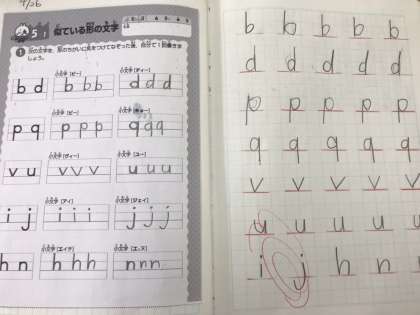 4/26
5 似ている形の文字
❶ 次の文字を、形のちがいに気をつけてなぞった後、自分で1回書きましょう。
小文字[ビー] 小文字[ディー]
b d b b b d d d
小文字[ピー] 小文字[キュー]
p q p p p q q q
小文字[ヴィー] 小文字[ユー]
v u v v v u u u
小文字[アイ] 小文字[ジェイ]
i j i i i j j j
小文字[エイチ] 小文字[エヌ]
h n h h h n n n
b b b b b
d d d d d
p p p p p
q q q q q
v v v v v
u u u u u
i j h n